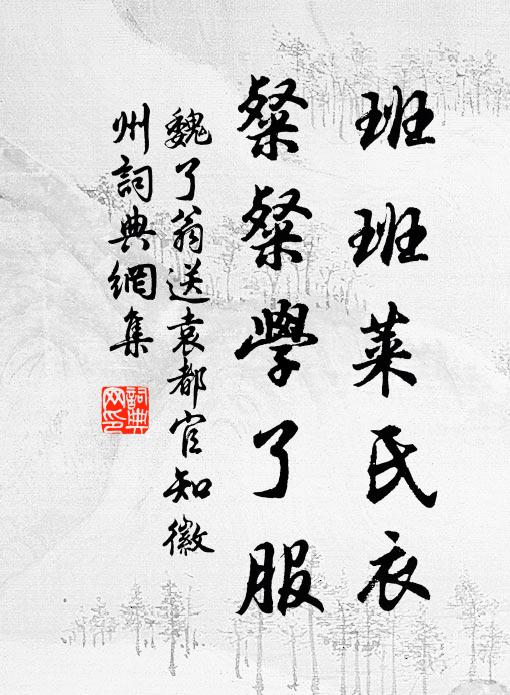 班班萊氏衣
粲粲學了服
魏了翁送袁都官知徽
州詞典網集
詞典
网印